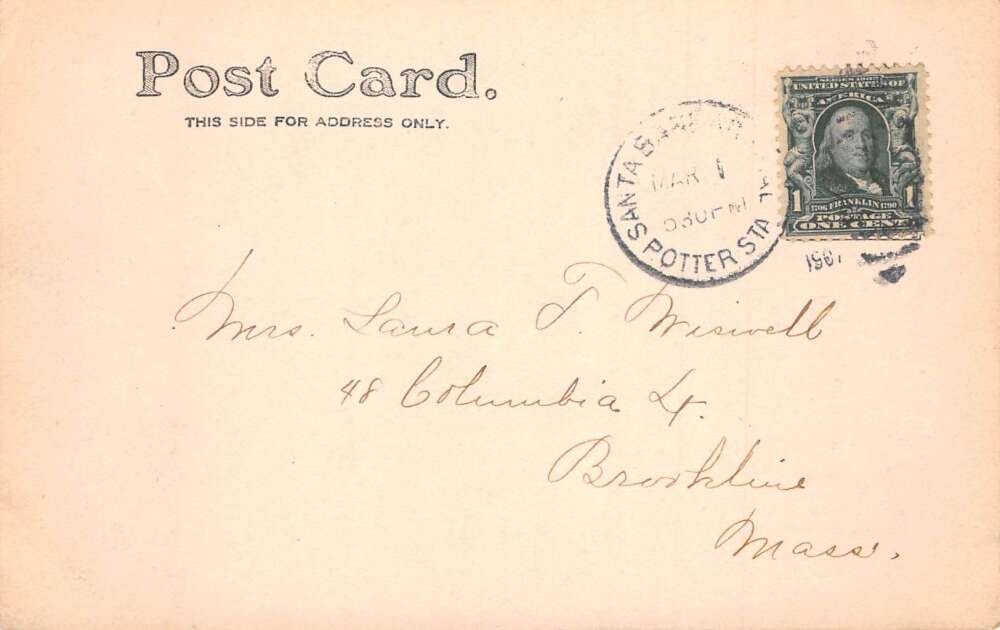 Post Card.
THIS SIDE FOR ADDRESS ONLY.
SANTA
MAR 1
530 PM
POTTER STA
SERIES 1902
UNITED STATES OF
AMERICA
1 1706 FRANKLIN 1790 1
POSTAGE
ONE CENT
Mrs. Laura T. Wiswell
48 Columbia St.
Brookline
Mass.